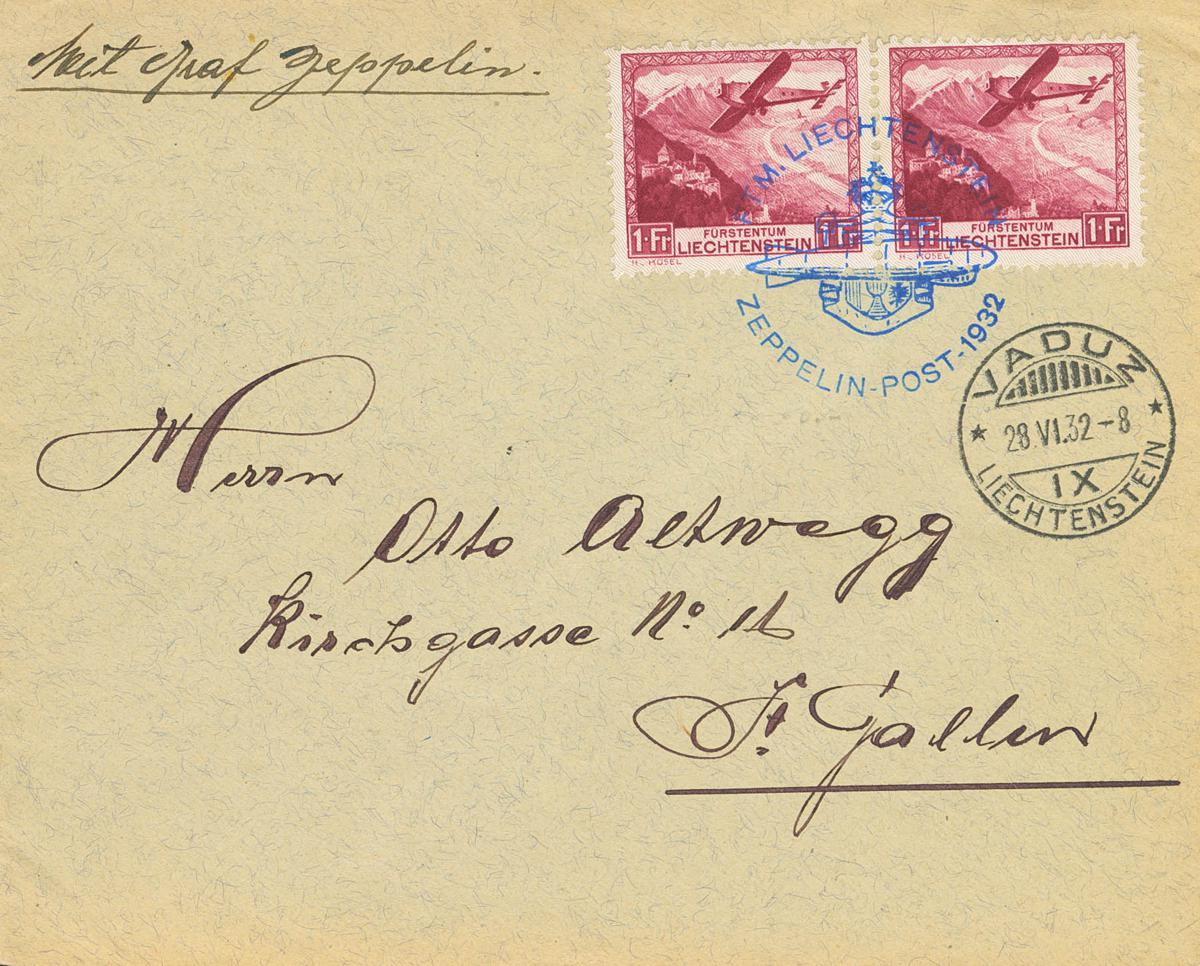 Mit Graf Zeppelin.
1·Fr FÜRSTENTUM LIECHTENSTEIN 1·Fr
1·Fr FÜRSTENTUM LIECHTENSTEIN 1·Fr
FTM. LIECHTENSTEIN
ZEPPELIN-POST-1932
VADUZ
28.VI.32-8
IX
LIECHTENSTEIN
Herrn
Otto Altwegg
Kirchgasse No.
St. Gallen